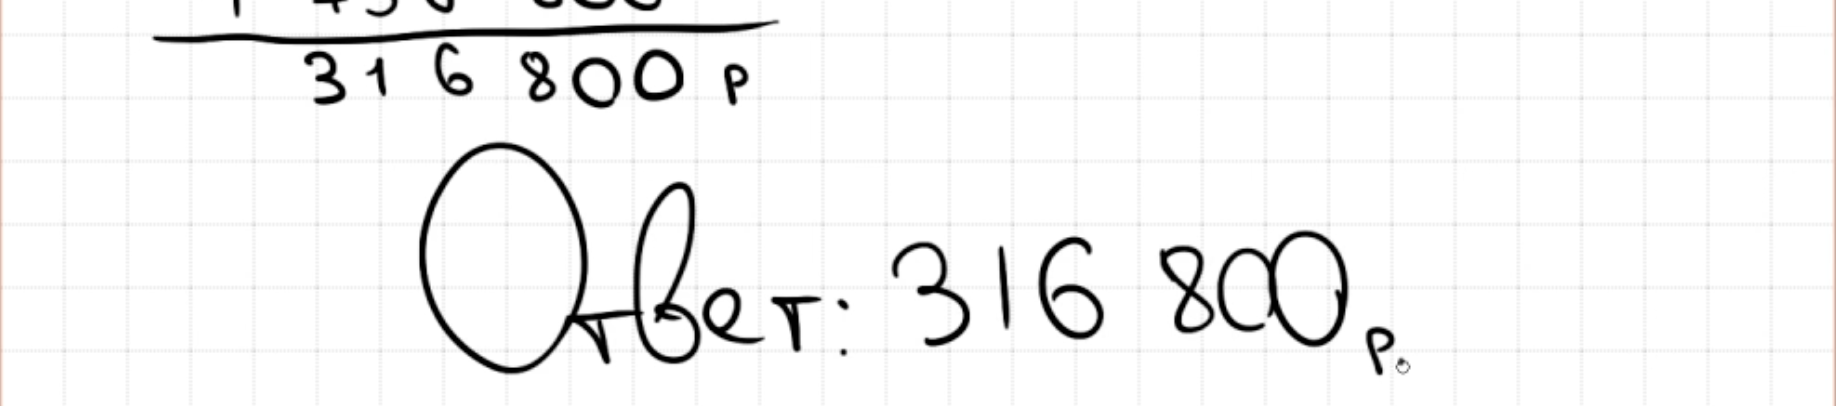 316 800 р
Ответ: 316 800 р.